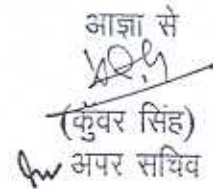 आज्ञा से
(कुंवर सिंह)
अपर सचिव